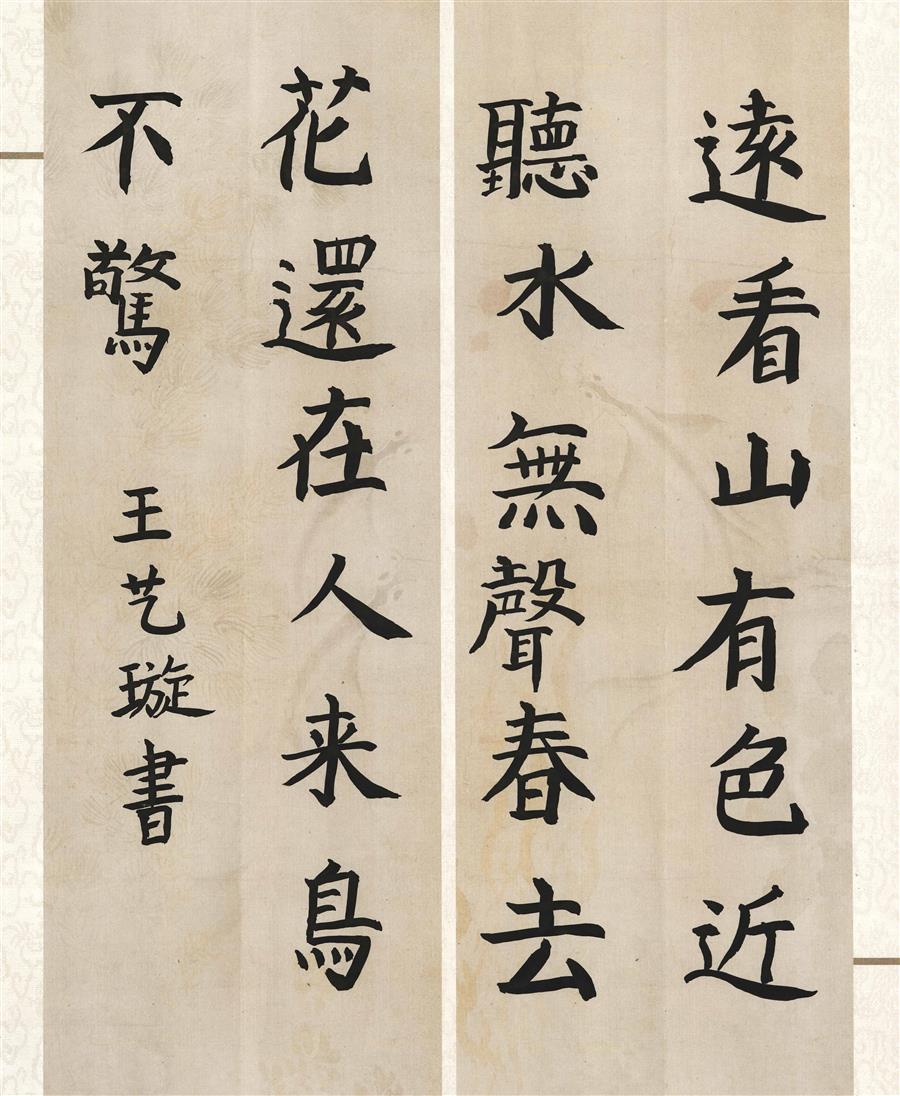 遠看山有色近
聽水無聲春去
花還在人来鳥
不驚
王艺璇書